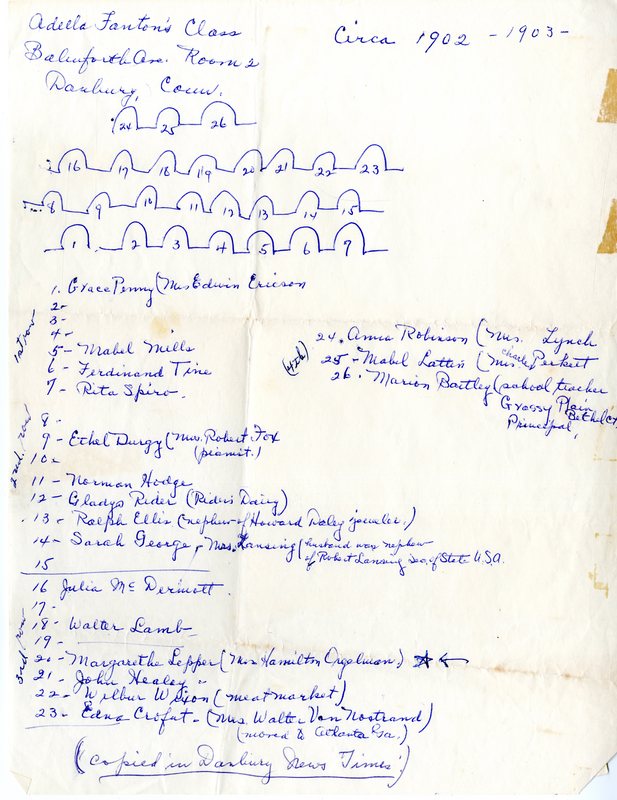 Adella Fanton's Class
Circa 1902 - 1903 -
Balmforth Ave. Room 2
Danbury, Conn.
24 25 26
16 17 18 19 20 21 22 23
8 9 10 11 12 13 14 15
1 2 3 4 5 6 7
1st row
1. Grace Penny (Mrs Edwin Ericson
2-
3-
4-
5- Mabel Mills
6- Ferdinand Tine
7- Rita Spiro.
(4th)
24. Anna Robinson (Mrs. Lynch
25- Mabel Lattin (Mrs. Charles Perkett
26. Marion Bartley (school teacher
Grassy Plain
Bethel Ct
Principal,
2nd. row
8-
9- Ethel Durgy (Mrs. Robert Fox
(pianist.)
10-
11- Norman Hodge
12- Gladys Rider (Rider's Dairy)
13- Ralph Ellis (nephew of Howard Daley jeweler.)
14- Sarah George, Mrs. Lansing (husband was nephew
of Robert Lansing sec. of State U.S.A.
15
3rd row
16 Julia McDermott.
17-
18- Walter Lamb-
19-
20- Margarethe Lepper (Mrs Hamilton Orgelman) ☆ ←
21- John Healey -
22- Wilbur Wixon (meat market)
23- Edna Crofut- (Mrs. Walter Van Nostrand)
(moved to Atlanta Ga.)
(copied in Danbury News Times.)